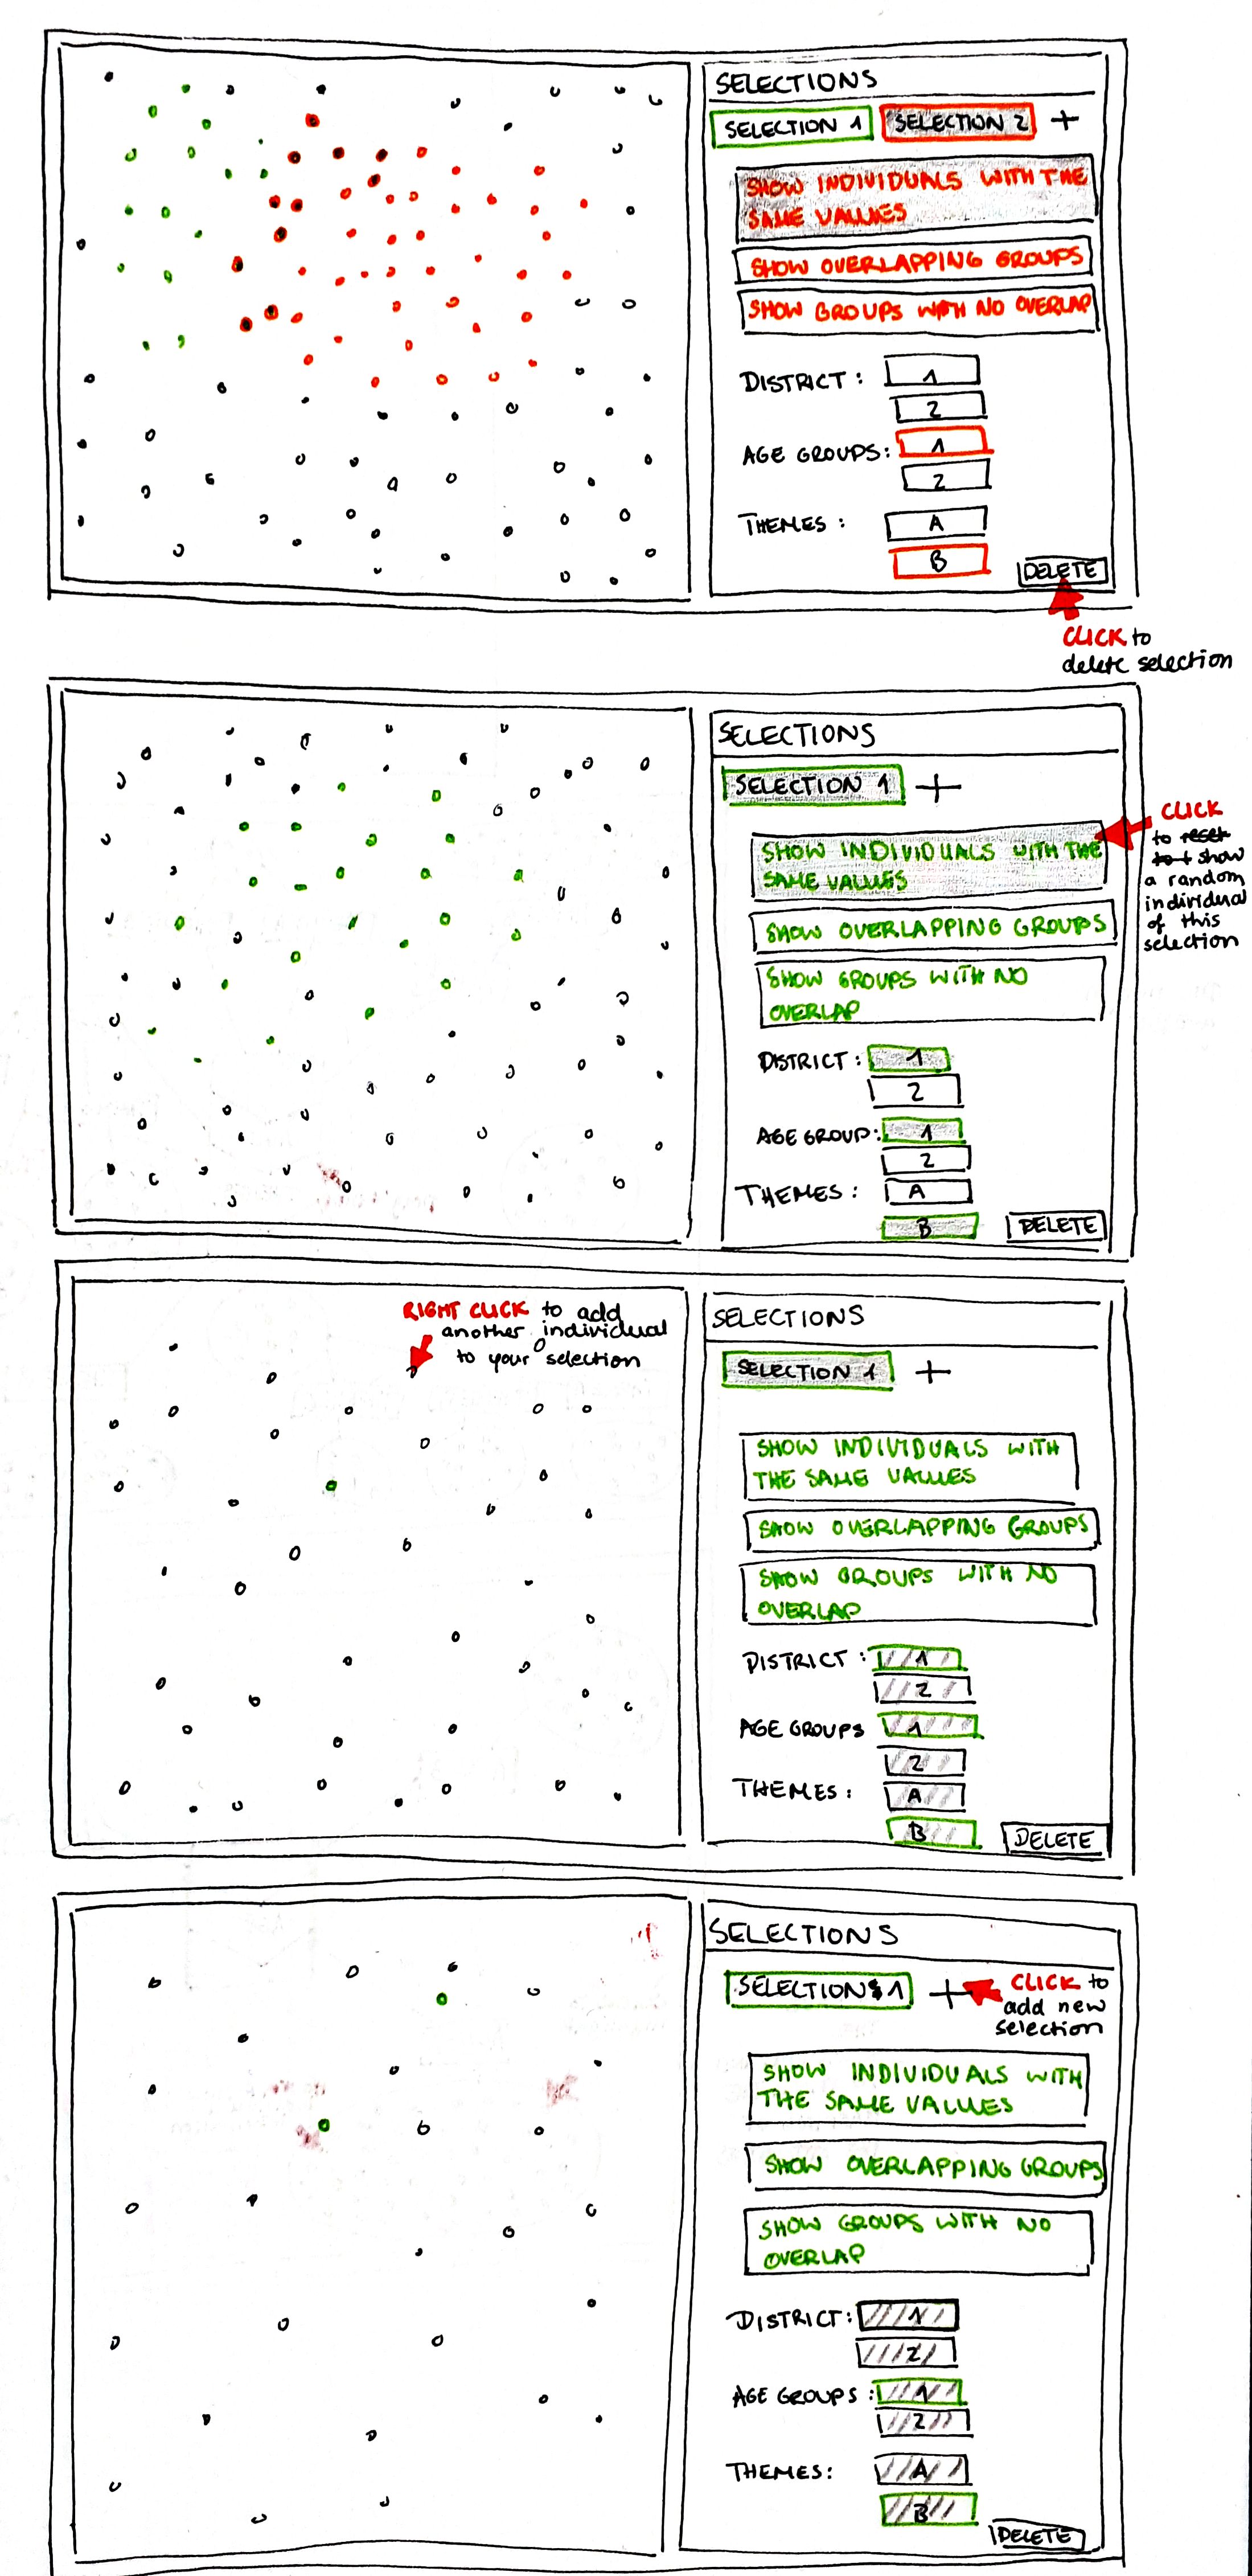 SELECTIONS
SELECTION 1 SELECTION 2 +
SHOW INDIVIDUALS WITH THE
SAME VALUES
SHOW OVERLAPPING GROUPS
SHOW GROUPS WITH NO OVERLAP
DISTRICT : 1
2
AGE GROUPS: 1
2
THEMES : A
B
DELETE
CLICK to
delete selection
SELECTIONS
SELECTION 1 +
SHOW INDIVIDUALS WITH THE
SAME VALUES
SHOW OVERLAPPING GROUPS
SHOW GROUPS WITH NO
OVERLAP
DISTRICT : 1
2
AGE GROUP: 1
2
THEMES : A
B
DELETE
CLICK
to reset
show
a random
individual
of this
selection
RIGHT CLICK to add
another individual
to your selection
SELECTIONS
SELECTION 1 +
SHOW INDIVIDUALS WITH
THE SAME VALUES
SHOW OVERLAPPING GROUPS
SHOW GROUPS WITH NO
OVERLAP
DISTRICT : 1
2
AGE GROUPS 1
2
THEMES : A
B
DELETE
SELECTIONS
SELECTIONS 1 +
CLICK to
add new
selection
SHOW INDIVIDUALS WITH
THE SAME VALUES
SHOW OVERLAPPING GROUPS
SHOW GROUPS WITH NO
OVERLAP
DISTRICT: 1
2
AGE GROUPS : 1
2
THEMES: A
B
DELETE